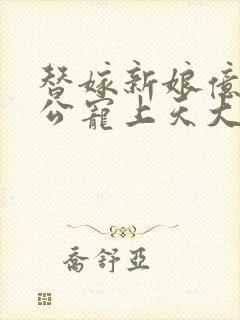 替嫁新娘億
公寵上天大
喬舒亞